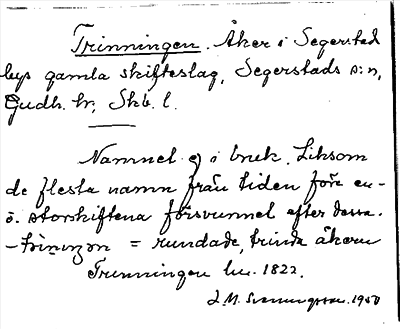 Trinningen. Åker i Segerstad
bys gamla skifteslag, Segerstads s:n,
Gudh. hr, Skb. l.
Namnet ej i bruk. Liksom
de flesta namn från tiden före en-
o. storskiftena försvunnet efter dessa.
= rundade, trinda åkern
Trinningen 1822.
J. M. 1950